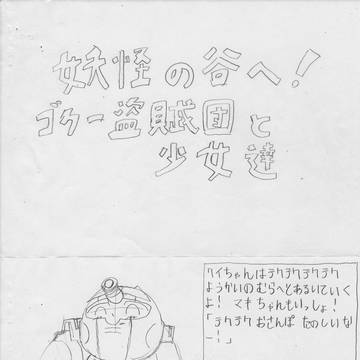 妖怪の谷へ!
ゴクー盗賊団と
少女達
ケイちゃんはテクテクテクテク
ようかいのむらへとあるいていく
よ! マキちゃんもいっしょ!
「テクテク おさんぽ たのしいな
ー!」